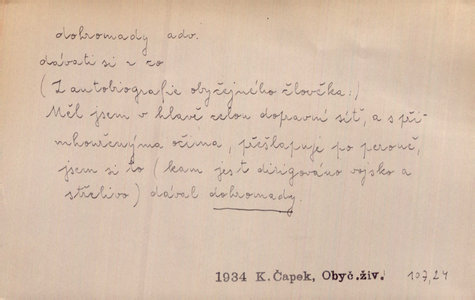 dohromady adv.
dávati si z co
(Z autobiografie obyčejného člověka:)
Měl jsem v hlavě celou dopravní síť, a s při-
mhouřenýma očima, přešlapuje po peroně,
jsem si to (kam jest dirigováno vojsko a
střelivo) dával dohromady.
1934 K.Čapek, Obyč.živ. 107,24